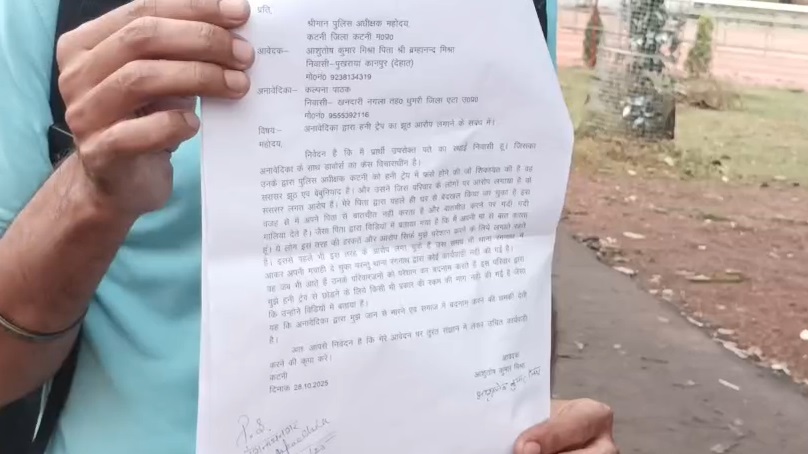 प्रति,
श्रीमान पुलिस अधीक्षक महोदय,
कटनी जिला कटनी म०प्र०
आवेदक– आशुतोष कुमार मिश्रा पिता श्री ब्रम्हानन्द मिश्रा
निवासी–पुखराया कानपुर (देहात)
मो०नं० 9238134319
अनावेदिका– कल्पना पाठक
निवासी– खनदारी नगला तह० धुमरी जिला एटा उ०प्र०
मो०नं० 9555392116
विषय:– अनावेदिका द्वारा हनी ट्रेप का झूठ आरोप लगाने के संबंध में।
महोदय,
निवेदन है कि मैं प्रार्थी उपरोक्त पते का स्थाई निवासी हूं। जिसका
अनावेदिका के साथ डायवोर्स का केस विचाराधीन है।
उनके द्वारा पुलिस अधीक्षक कटनी को हनी ट्रेप में फंसे होने की जो शिकायत की है वह
सरासर झूठ एवं बेबुनियाद है। और उसने जिस परिवार के लोगों पर आरोप लगाया है वो
सरासर गलत आरोप है। मेरे पिता द्वारा पहले ही घर से बेदखल किया जा चुका है इस
वजह से मैं अपने पिता से बातचीत नही करता हूं और बातचीत करने पर गंदी गंदी
गालियां देते है। जैसा पिता द्वारा विडियो में बताया गया है कि मैं अपनी मां से बात करता
हूं। ये लोग इस तरह की हरकतें और आरोप सिर्फ मुझे परेशान करने के लिये लगाते रहते
है। इससे पहले भी इस तरह के आरोप लगा चुकी है उस समय भी थाना रंगनाथ में
आकर अपनी गवाही दे चुका परन्तु थाना रंगनाथ द्वारा कोई कार्यवाही नही की गई है।
यह जब भी आते है उनके परिवारजनों को परेशान कर बदनाम करते है इस परिवार द्वारा
मुझे हनी ट्रेप से छोडने के लिये किसी भी प्रकार की रकम की मांग नही की गई है जैसा
कि उन्होंने विडियो में बताया है।
यह कि अनावेदिका द्वारा मुझे जान से मारने एवं समाज में बदनाम करने की धमकी देती
है।
अतः आपसे निवेदन है कि मेरे आवेदन पर तुरंत संज्ञान में लेकर उचित कार्यवाही
करने की कृपा करें।
कटनी
दिनांक 28.10.2025
आवेदक
आशुतोष कुमार मिश्रा